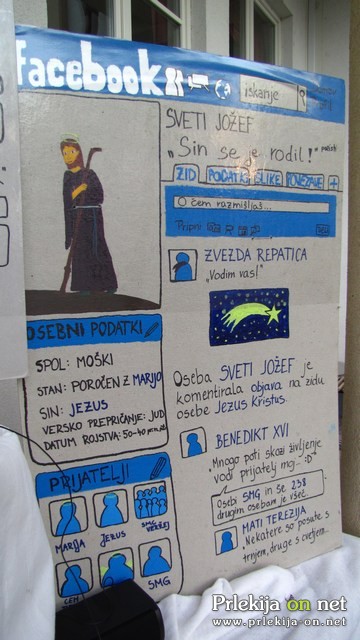 facebook
iskanje
SVETI JOŽEF
„Sin se je rodil!"
ZID PODATKI SLIKE POVEZAVE +
O čem razmišljaš...
Pripni
ZVEZDA REPATICA
„Vodim vas!"
OSEBNI PODATKI
SPOL: MOŠKI
STAN: POROČEN Z MARIJO
SIN: JEZUS
VERSKO PREPRIČANJE: JUD
DATUM ROJSTVA: 50-40 pr.
Oseba SVETI JOŽEF je
komentirala objavo na zidu
osebe Jezus Kristus.
BENEDIKT XVI
„Mnogo poti skozi življenje
vodi prijatelj moj... :D"
Osebi SMG in še 238
drugim osebam je všeč.
MATI TEREZIJA
„Nekatere so posute s
trnjem, druge s cvetjem...
PRIJATELJI
MARIJA
JEZUS
SMG
VERŽEJ
SMG
Prlekija on net
www.prlekija-on.net